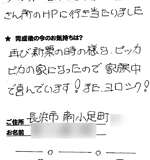 さん所のHPに行き当たりました
★ 完成後の今のお気持ちは?
再び新築の時の様な、ピッカ
ピカの家になったので家族中
で喜んでいます!また、ヨロシク!
ご住所 長浜市 南小足町
お名前